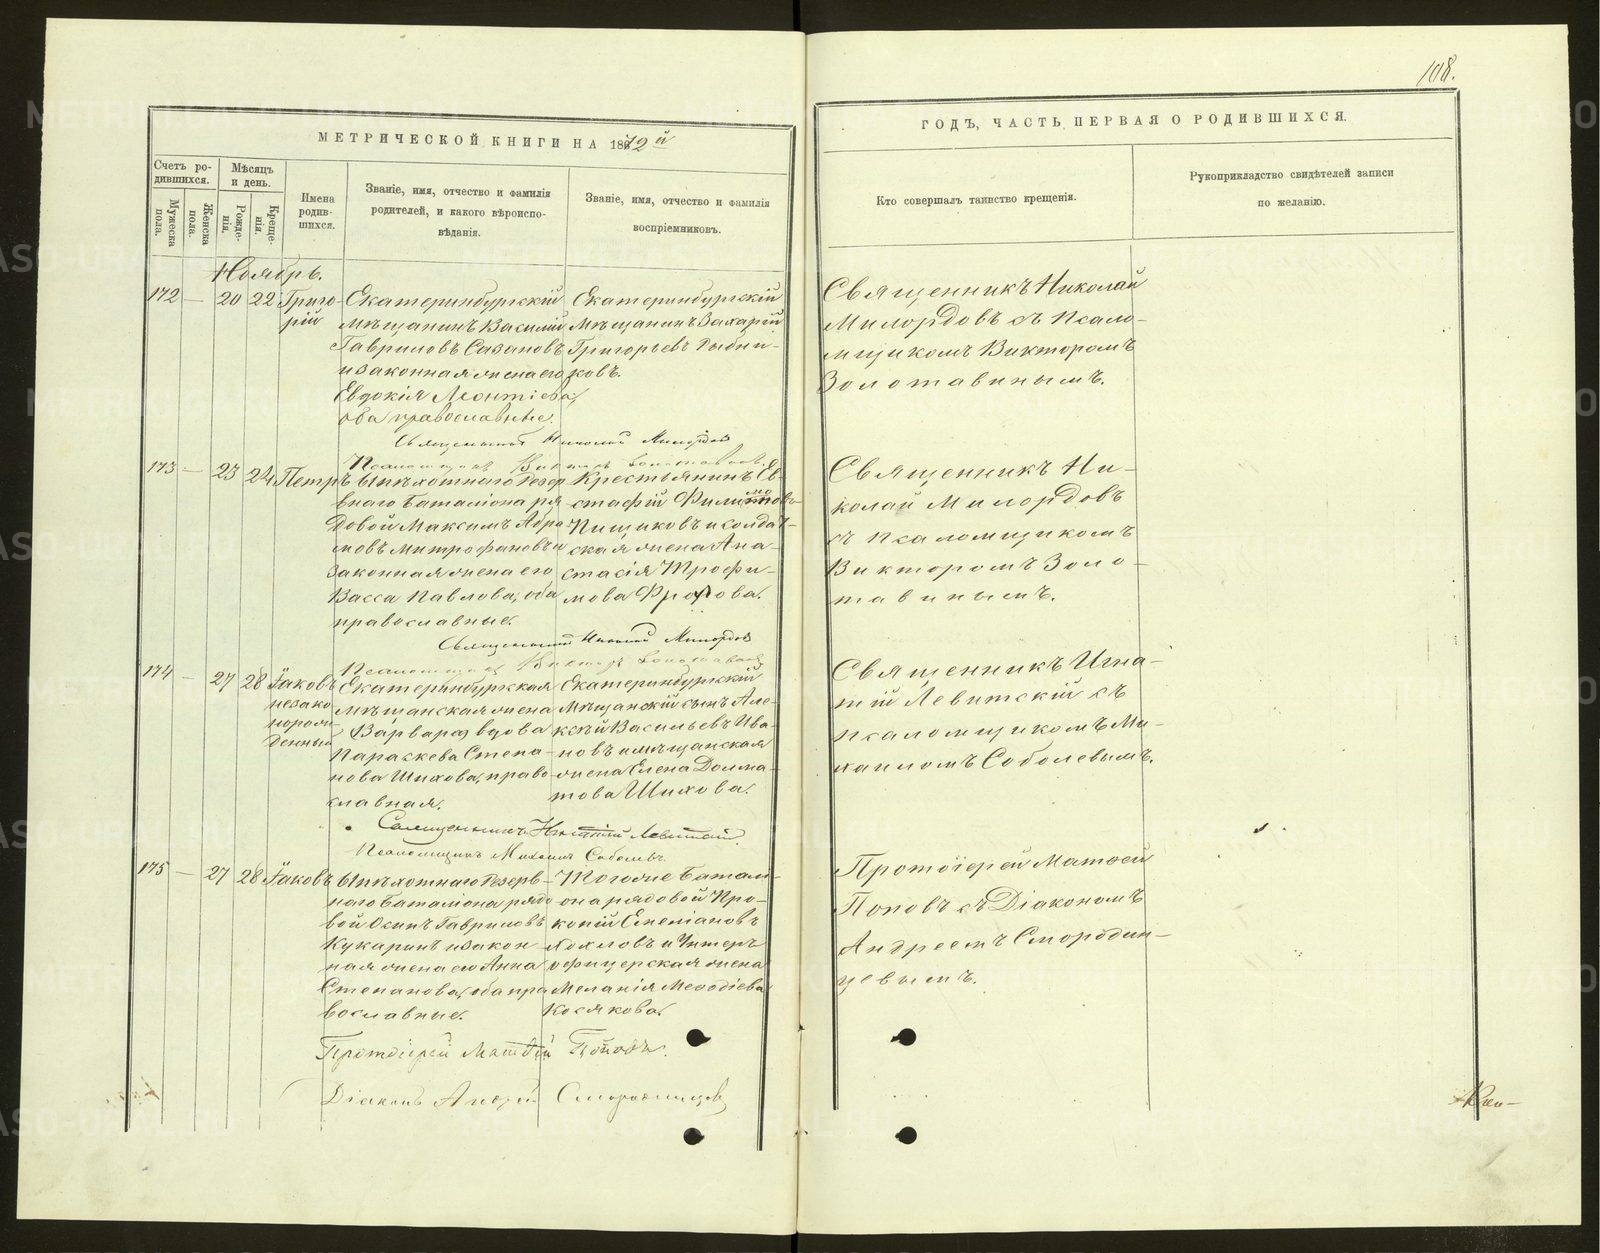 108.
МЕТРИЧЕСКОЙ КНИГИ НА 1872й
ГОДЪ, ЧАСТЬ ПЕРВАЯ О РОДИВШИХСЯ.
Счетъ ро-
дившихся.
Мужеска
пола.
Женска
пола.
Мѣсяцъ
и день.
Рожде-
нія.
Креще-
нія.
Имена
родив-
шихся.
Званіе, имя, отчество и фамилія
родителей, и какого вѣроиспо-
вѣданія.
Званіе, имя, отчество и фамилія
воспріемниковъ.
Кто совершалъ таинство крещенія.
Рукоприкладство свидѣтелей записи
по желанію.
Ноябрь.
172 — 20 22 Григо-
рій
Екатеринбургскій
мѣщанинъ Василій
Гавриловъ Сазановъ
и законная жена его
Евдокія Леонтіева,
оба православные.
Екатеринбургскій
Мѣщанинъ Захарій
Григорьевъ Рыбни-
ковъ.
Священникъ Николай
Милордовъ съ Псало-
мщикомъ Викторомъ
Золотавинымъ.
Священникъ Николай Милордовъ
Псаломщикъ Викторъ Золотавинъ
173 — 23 24 Петръ
Пѣхотнаго Резер-
внаго Баталіона ря-
довой Максимъ Абра-
мовъ Митрофановъ и
законная жена его
Васса Павлова, оба
православные.
Крестьянинъ Ев-
стафій
Пищиковъ и солдат-
ская жена Ана-
стасія Трофи-
мова Фролова.
Священникъ Ни-
колай Милордовъ
съ псаломщикомъ
Викторомъ Золо-
тавинымъ.
Священникъ Николай Милордовъ
Псаломщикъ Викторъ Золотавинъ
174 — 27 28 Іаковъ
незако
норож-
денный
Екатеринбургская
мѣщанская жена
Варвара вдова
Параскева Степа-
нова Шихова, право-
славная.
Екатеринбургскій
Мѣщанскій сынъ Але-
ксѣй Васильевъ Ива-
новъ и мѣщанская
жена Елена Долма-
това Шихова.
Священникъ Игна-
тій Левитскій съ
псаломщикомъ Ми-
хаиломъ Соболевымъ.
Священникъ Игнатій Левитскій
Псаломщикъ Михаилъ Соболевъ
175 — 27 28 Іаковъ
Пѣхотнаго Резерв-
наго Баталіона рядо-
вой Осипъ Гавриловъ
Кукаринъ и закон-
ная жена его Анна
Степанова, оба пра-
вославные.
Тогоже Батал-
іона рядовой Про-
копій Емеліановъ
Хохловъ и Унтеръ
офицерская жена
Меланія Меѳодіева
Косякова.
Протоіерей Матѳей
Поповъ съ Діакономъ
Андреемъ Смородин-
цевымъ.
Протоіерей Матѳей Поповъ.
Діаконъ Андрей Смородинцевъ